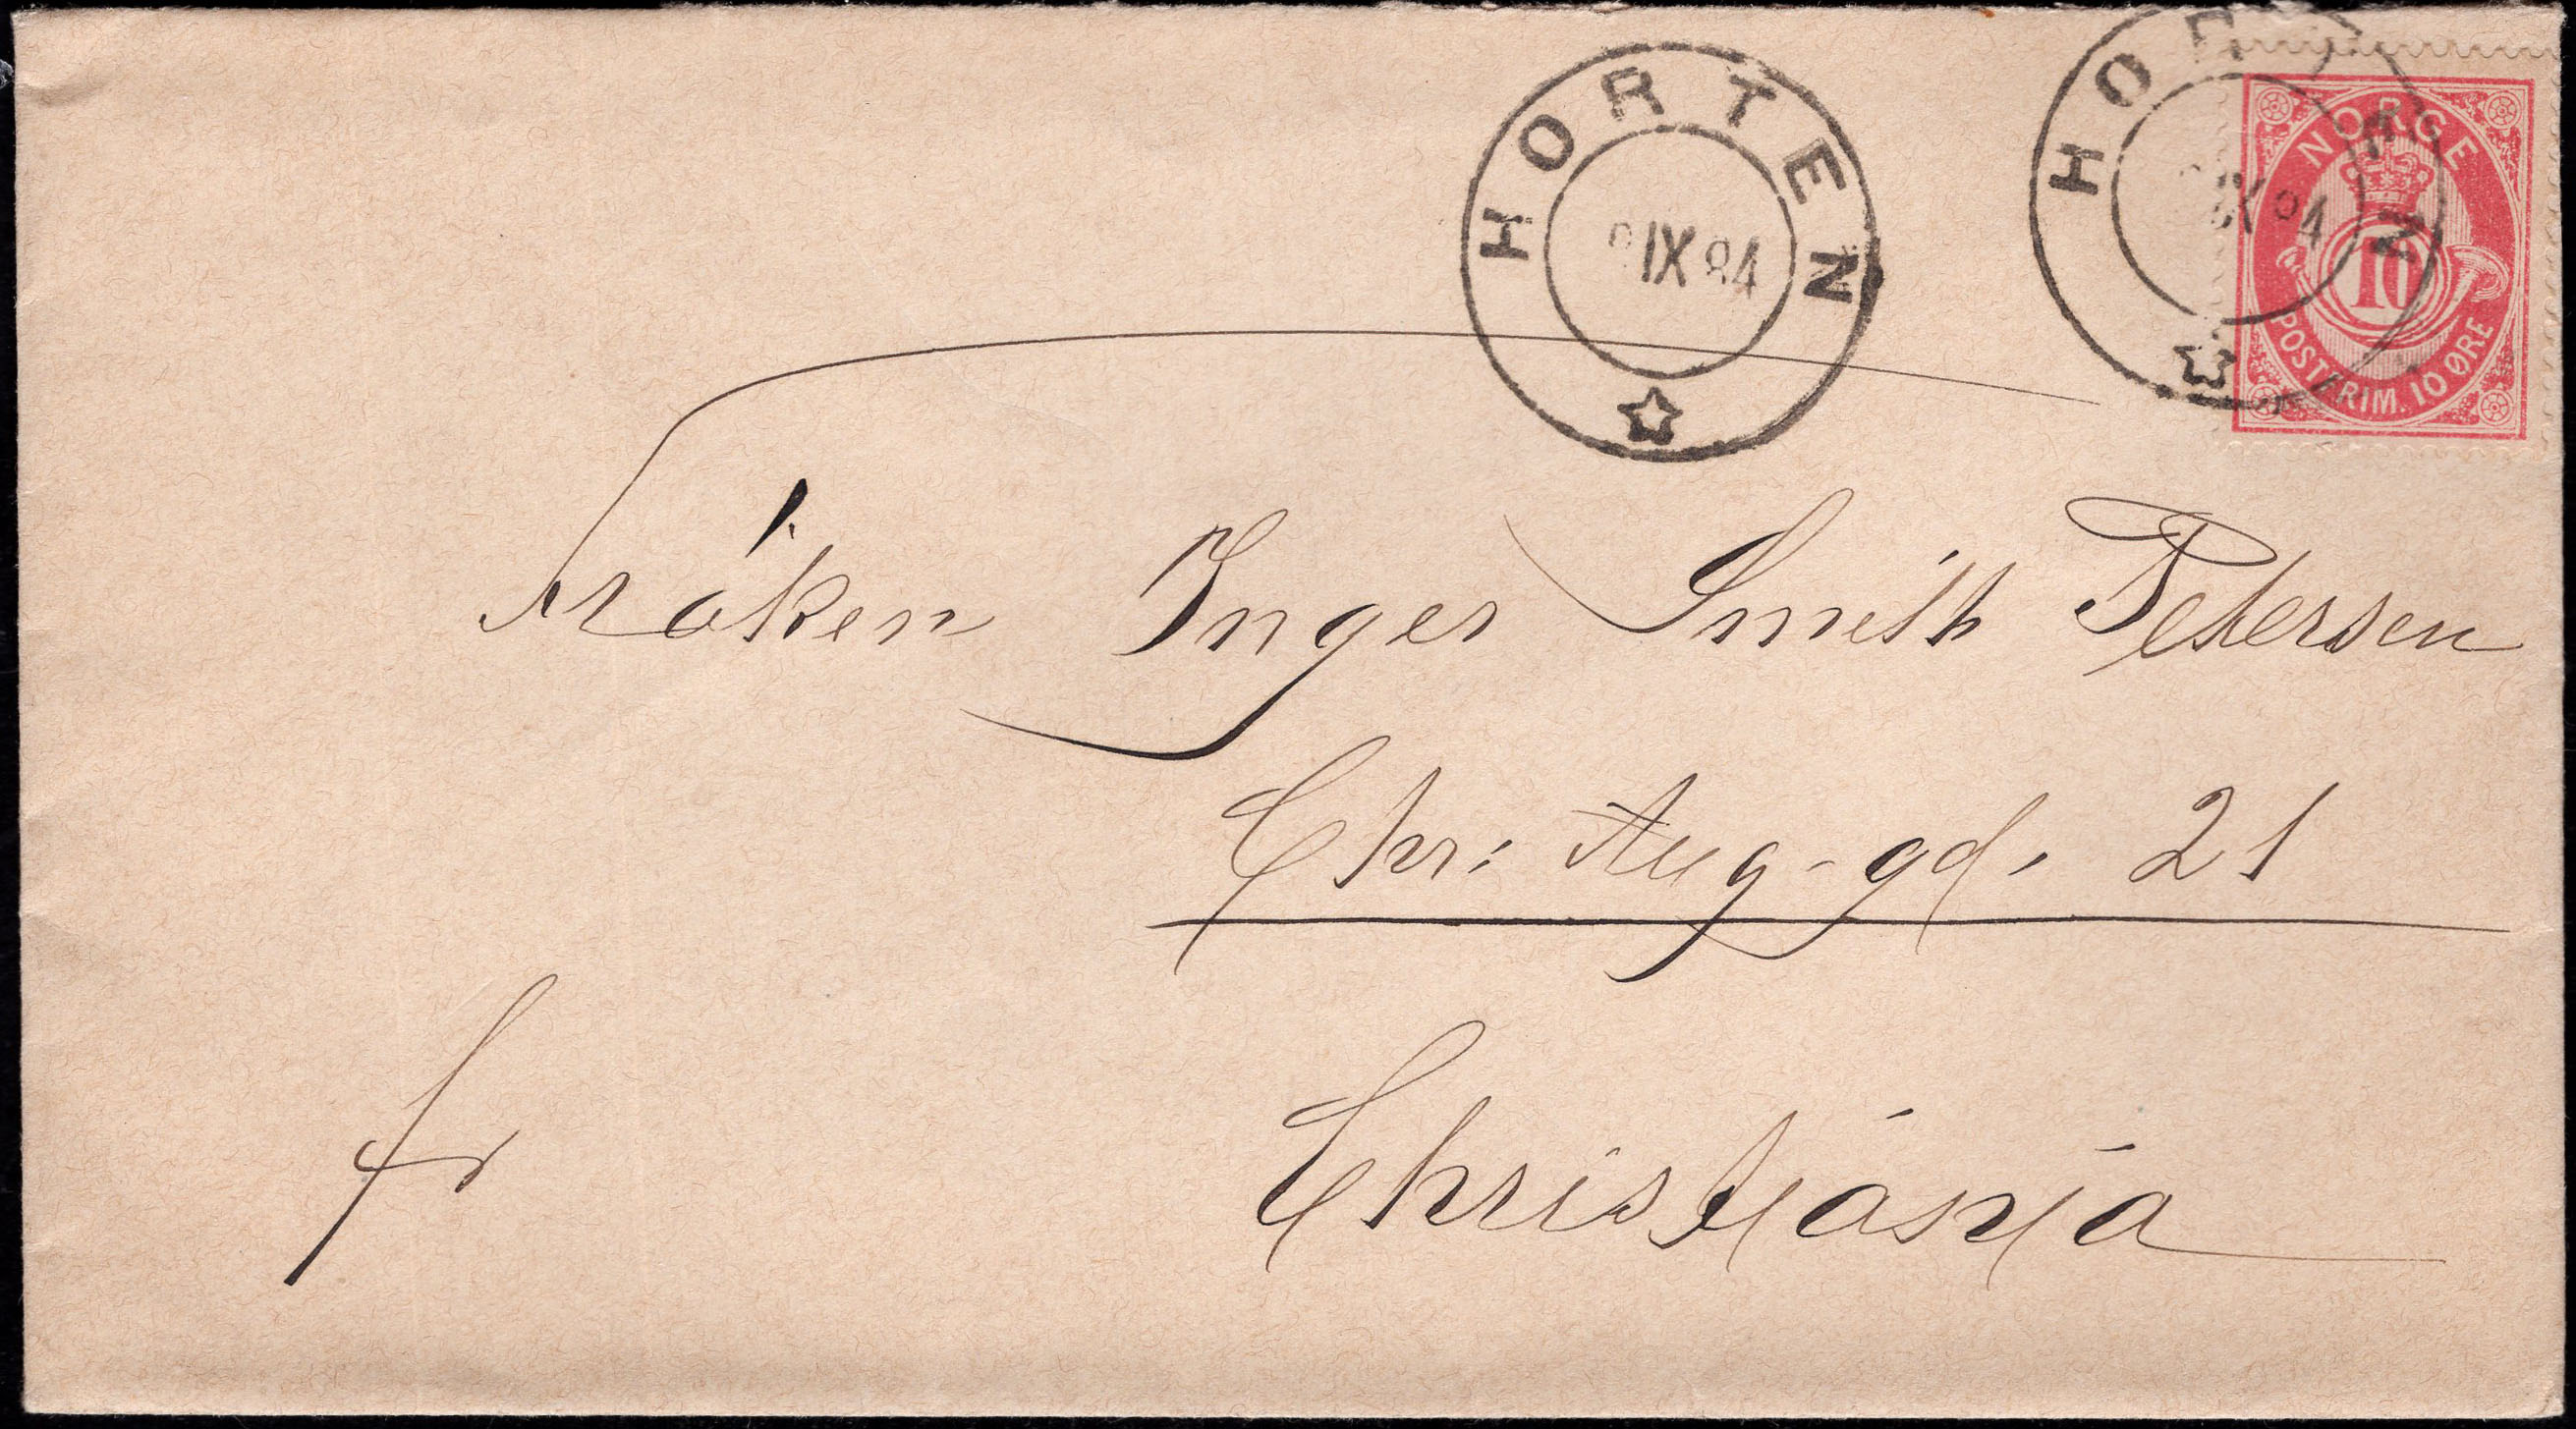 HORTEN
IX 84
HORTEN
IX 84
NORGE
10
POSTFRIM. 10 ØRE
Frøken Inger Smith Petersen
Chr: Aug-gd. 21
fr
Christjania